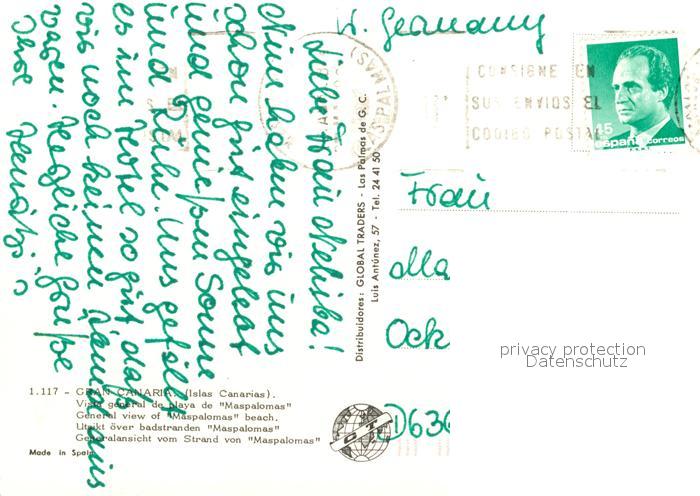 W. Germany
CONSIGNE EN
SUS ENVIOS EL
CODIGO POSTAL
45
españa correos
(LAS PALMAS)
Liebe Frau
Nun haben wir uns
schon gut eingelebt
und genießen Sonne
und Ruhe. Uns gefällt
es im Hotel so gut daß
wir noch keinen damit aus
wagen. Herzliche Grüße
Ihre
Distribuidores: GLOBAL TRADERS - Las Palmas de G. C.
Luis Antúnez, 57 - Tel. 24 41 50
Frau
Ma
Ock
D636
privacy protection
Datenschutz
1.117 - GRAN CANARIA. (Islas Canarias).
Vista general de playa de "Maspalomas"
General view of "Maspalomas" beach.
Utsikt över badstranden "Maspalomas"
Generalansicht vom Strand von "Maspalomas"
Made in Spain